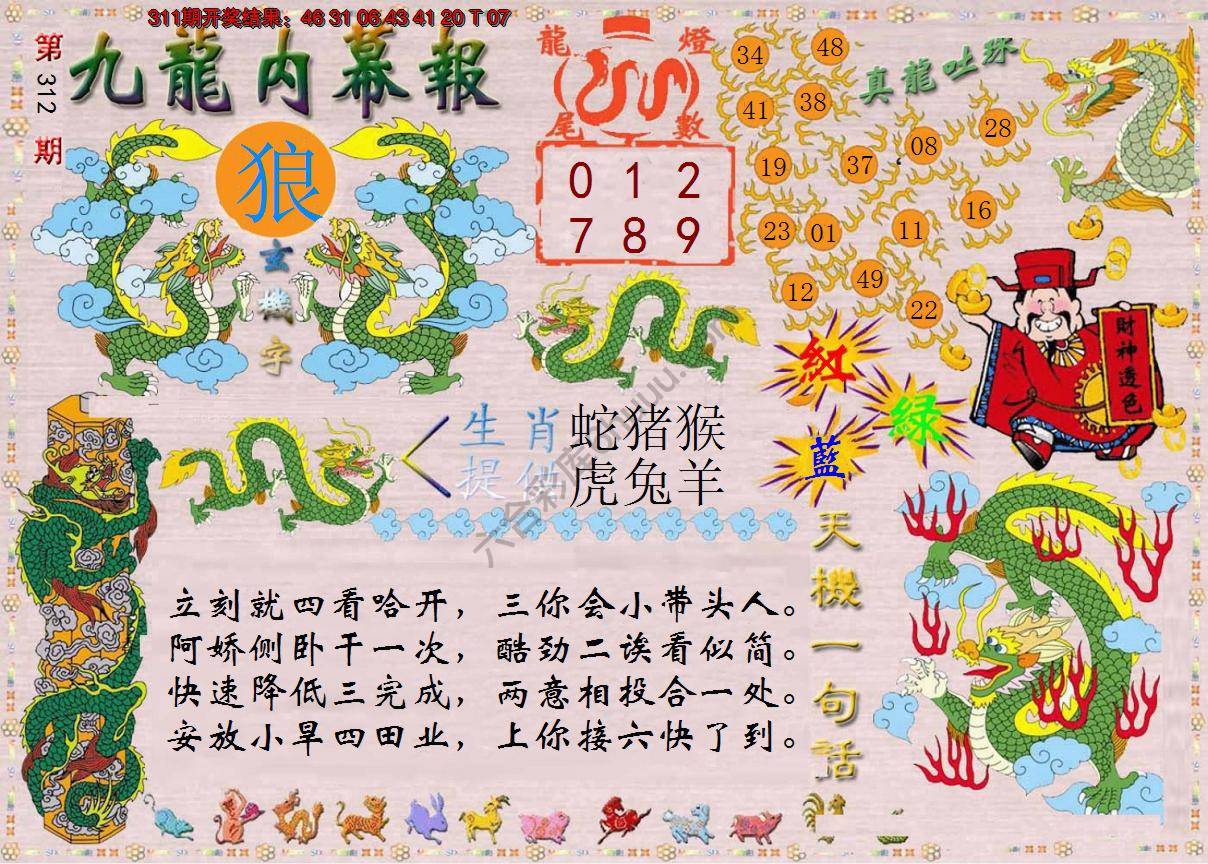 311期开奖结果：46 31 06 43 41 20 T 07
第312期
九龍内幕報
狼
玄機字
龍燈
尾數
0 1 2
7 8 9
真龍吐珠
34 48
41 38
19 37 08 28
23 01 11 16
12 49 22
財神透色
紅
綠
藍
生肖 蛇猪猴
提供 虎兔羊
天機一句話
立刻就四看哈开，三你会小带头人。
阿娇侧卧干一次，酷劲二诶看似简。
快速降低三完成，两意相投合一处。
安放小旱四田业，上你接六快了到。